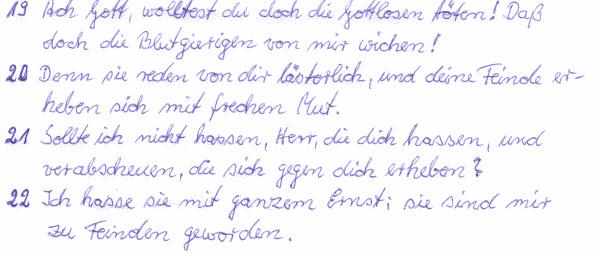 19 Ach Gott, wolltest du doch die Gottlosen töten! Daß
doch die Blutgierigen von mir wichen!
20 Denn sie reden von dir lästerlich, und deine Feinde er-
heben sich mit frechen Mut.
21 Sollte ich nicht hassen, Herr, die dich hassen, und
verabscheuen, die sich gegen dich erheben?
22 Ich hasse sie mit ganzem Ernst; sie sind mir
zu Feinden geworden.